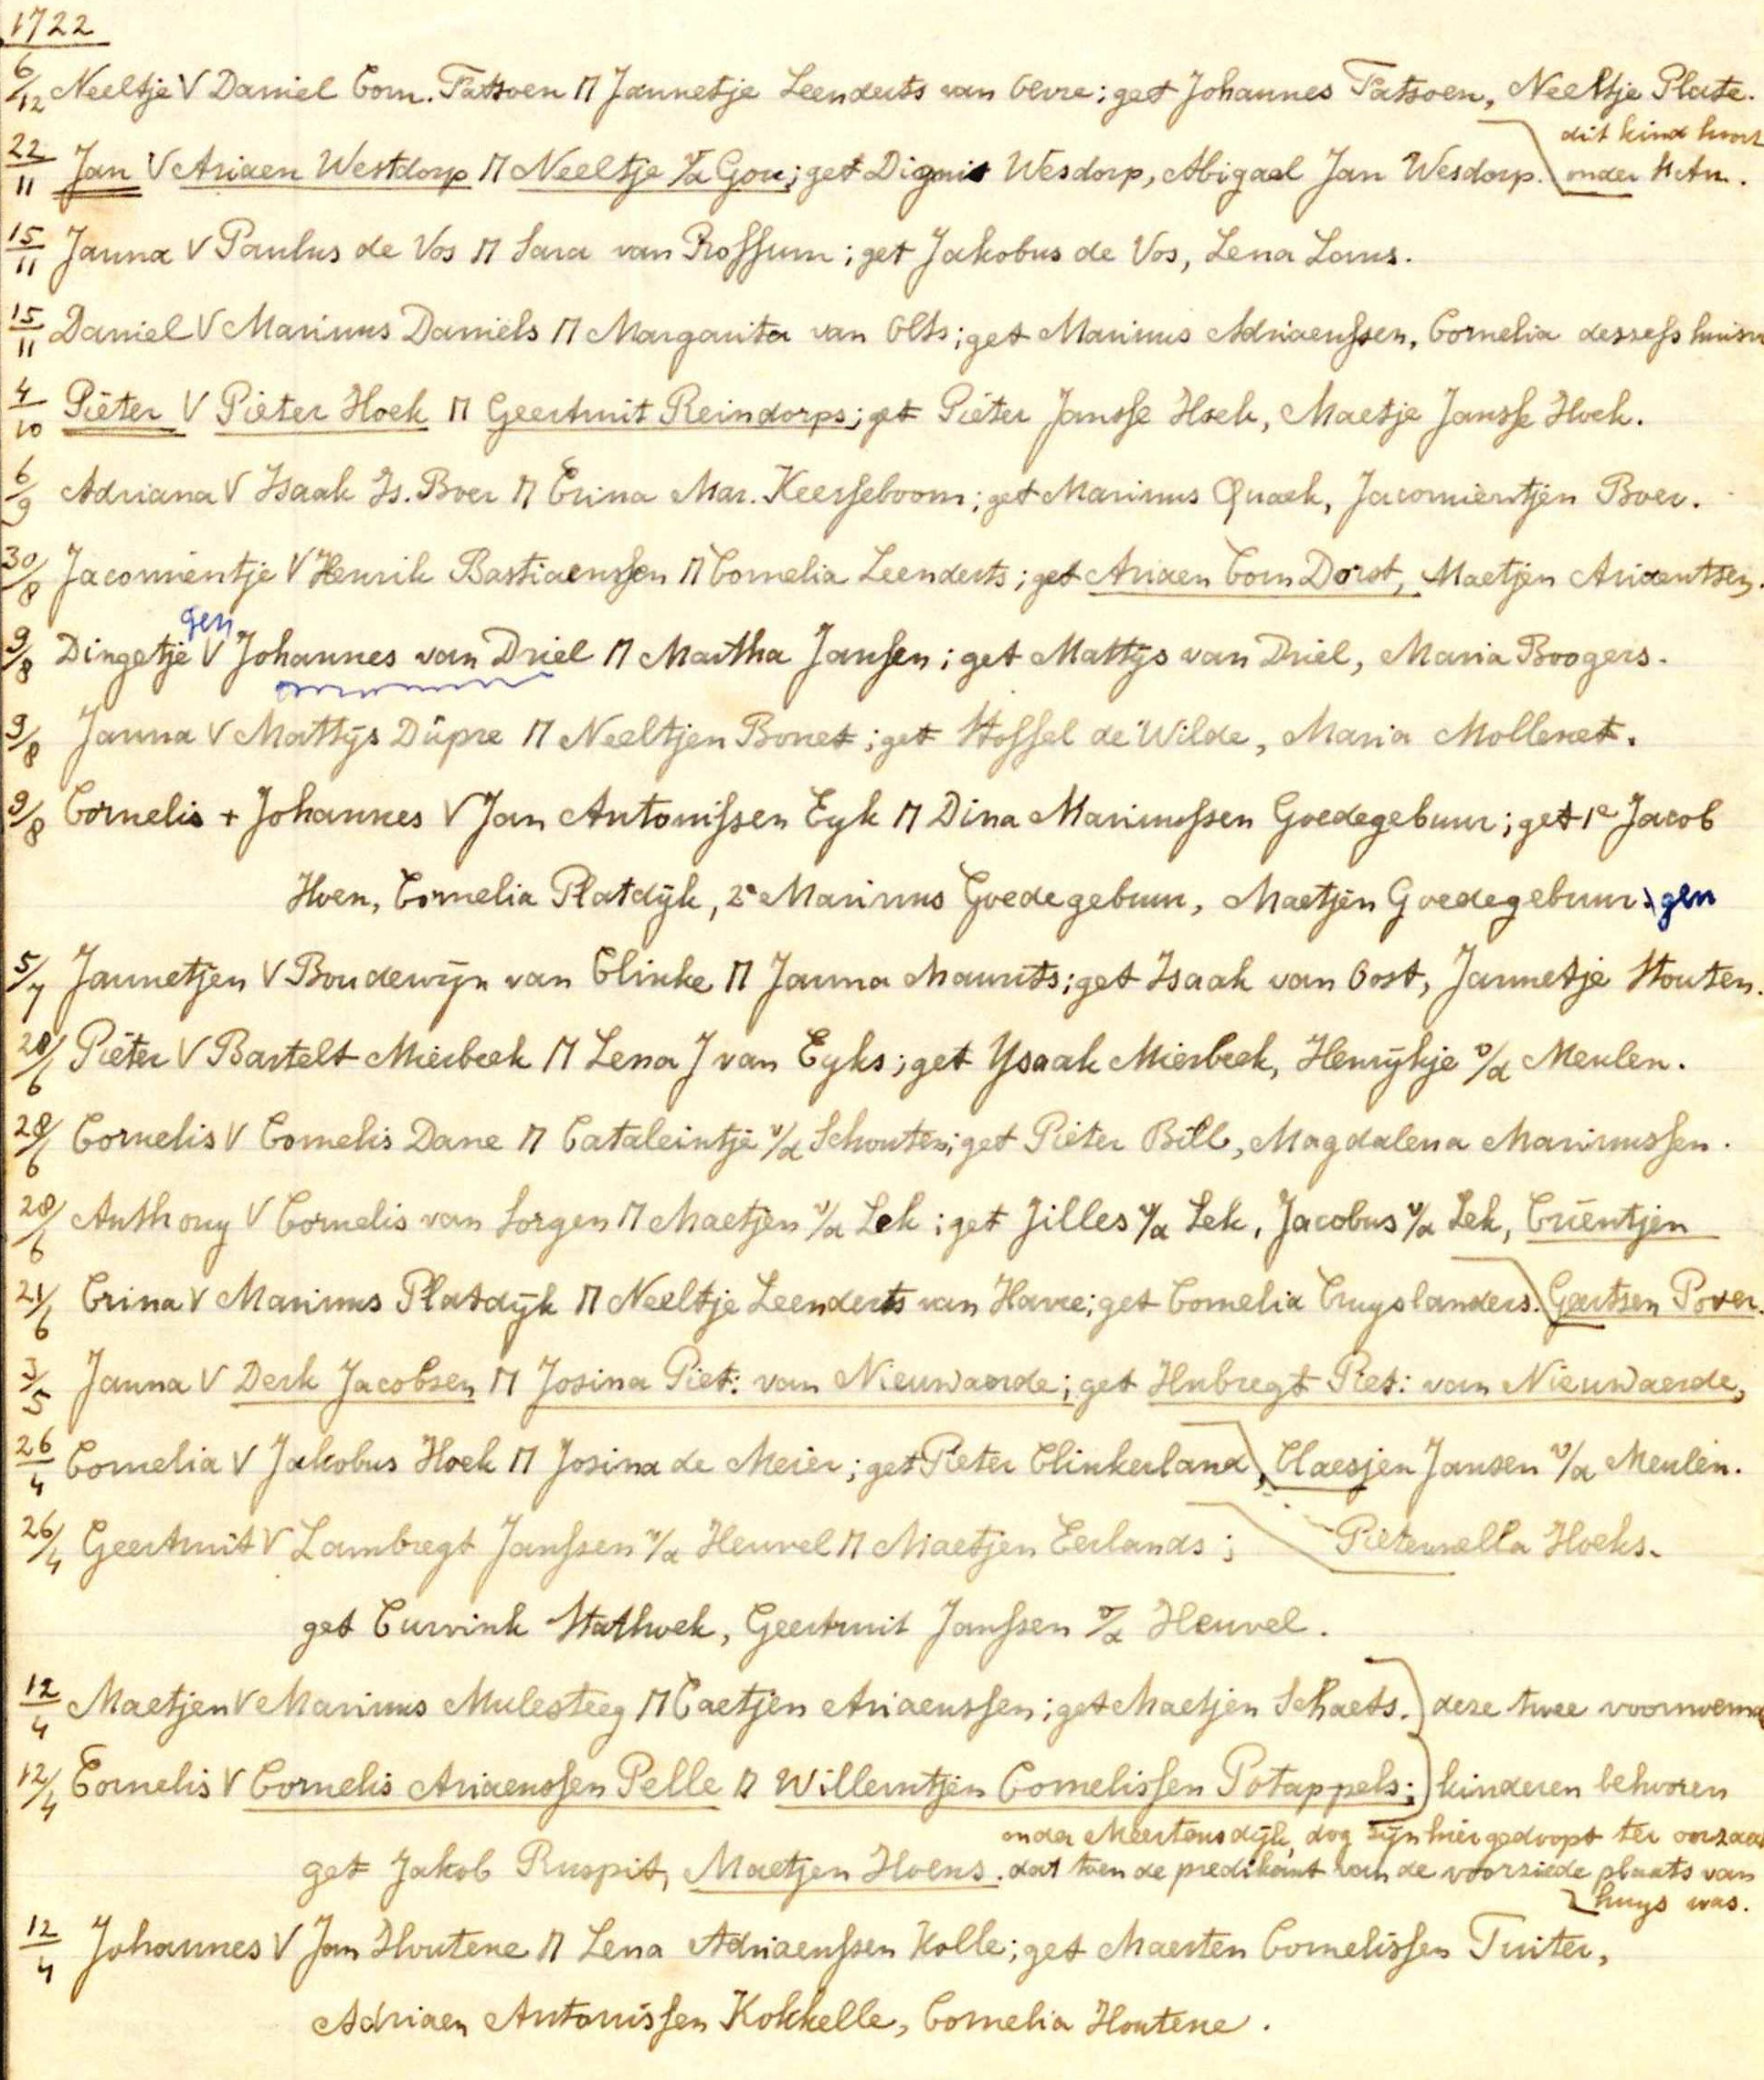 1722
6/12 Neeltje V Daniel Corn. Tatsoen M Jannetje Leenderts van Oevre; get Johannes Tatsoen, Neeltje Plate.
dit kind hoort
22/11 Jan V Ariaen Westdorp M Neeltje v/d Gou; get Dignis Wesdorp, Abigael Jan Wesdorp. onder St An.
15/11 Janna V Paulus de Vos M Sara van Rossum; get Jakobus de Vos, Lena Lous.
15/11 Daniel V Marinus Daniels M Margarita van Olts; get Marinus Adriaenssen, Cornelia deszefs huisv
4/10 Pieter V Pieter Hoek M Geertruit Reindorps; get Pieter Jansse Hoek, Maetje Jansse Hoek.
6/9 Adriana V Isaak Is. Boer M Crina Mar. Keerseboom; get Marinus Quaek, Jacomientjen Boer.
30/8 Jacomientje V Henrik Bastiaenssen M Cornelia Leenderts; get Ariaen Corn Dorst, Maetjen Ariaentsen.
gen
9/8 Dingetje V Johannes van Driel M Martha Jansen; get Mattijs van Driel, Maria Boogers.
9/8 Janna V Mattijs Düpre M Neeltjen Bonet; get Stoffel de Wilde, Maria Mollenet.
9/8 Cornelis + Johannes V Jan Antonissen Eyk M Dina Marinussen Goedegebuur; get 1e Jacob
Hoen, Cornelia Platdijk, 2e Marinus Goedegebuur, Maetjen Goedegebuur. gen
5/7 Jannetjen V Boudewijn van Clinke M Janna Maurits; get Isaak van Oost, Jannetje Stouten.
28/6 Pieter V Bartelt Mierbeek M Lena J van Eyks; get Ysaak Mierbeek, Henrijkje v/d Meulen.
28/6 Cornelis V Cornelis Dane M Cataleintje v/d Schouten; get Pieter Bill, Magdalena Marinussen.
28/6 Anthony V Cornelis van Sorgen M Maetjen v/d Lek; get Jilles v/d Lek, Jacobus v/d Lek, Crientjen
21/6 Crina V Marinus Platdijk M Neeltje Leenderts van Havre; get Cornelia Cruyslanders. Geertsen Pover.
3/5 Janna V Derk Jacobsen M Josina Piet: van Nieuwaerde; get Hubregt Piet: van Nieuwaerde,
26/4 Cornelia V Jakobus Hoek M Josina de Meier; get Pieter Clinkerland, Claesjen Jansen v/d Meulen.
26/4 Geertruit V Lambregt Janssen v/d Heuvel M Maetjen Eerlands; Pieternella Hoeks.
get Curvink Stathoek, Geertruit Janssen v/d Heuvel.
12/4 Maetjen V Marinus Mulesteeg M Caetjen Ariaenssen; get Maetjen Schaets. deze twee voornoemd
12/4 Cornelis V Cornelis Ariaenssen Pelle M Willemtjen Cornelissen Potappels; kinderen behooren
onder Meertensdijk, dog zijn hier gedoopt ter oorzaak
get Jakob Ruspit, Maetjen Hoens. dat toen de predikant van de voorziede plaats van
huys was.
12/4 Johannes V Jan Houtene M Lena Adriaenssen Kolle; get Maerten Cornelissen Tuiter,
Adriaen Antonissen Kokkelle, Cornelia Houtene.